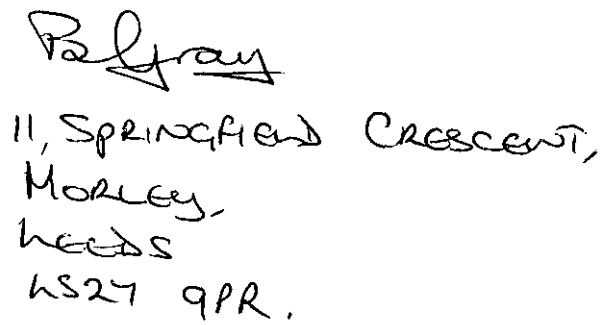 11, SPRINGFIELD CRESCENT,
MORLEY,
LEEDS
LS27 9PR.